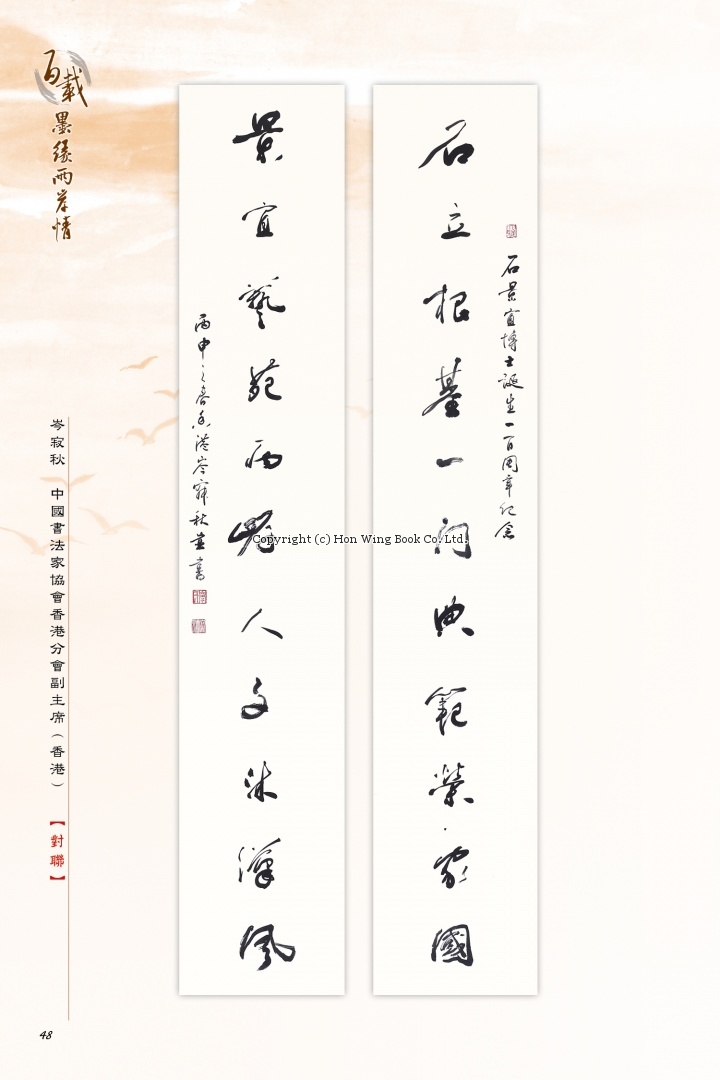 百載墨緣兩岸情
石立根基一门典範榮家國
石景宜博士誕生一百周年纪念
景宜藝苑两岸人文沐漢風
丙申之春香港岑寂秋並書
岑寂秋 中國書法家協會香港分會副主席（香港）
【對聯】
Copyright (c) Hon Wing Book Co. Ltd.
48